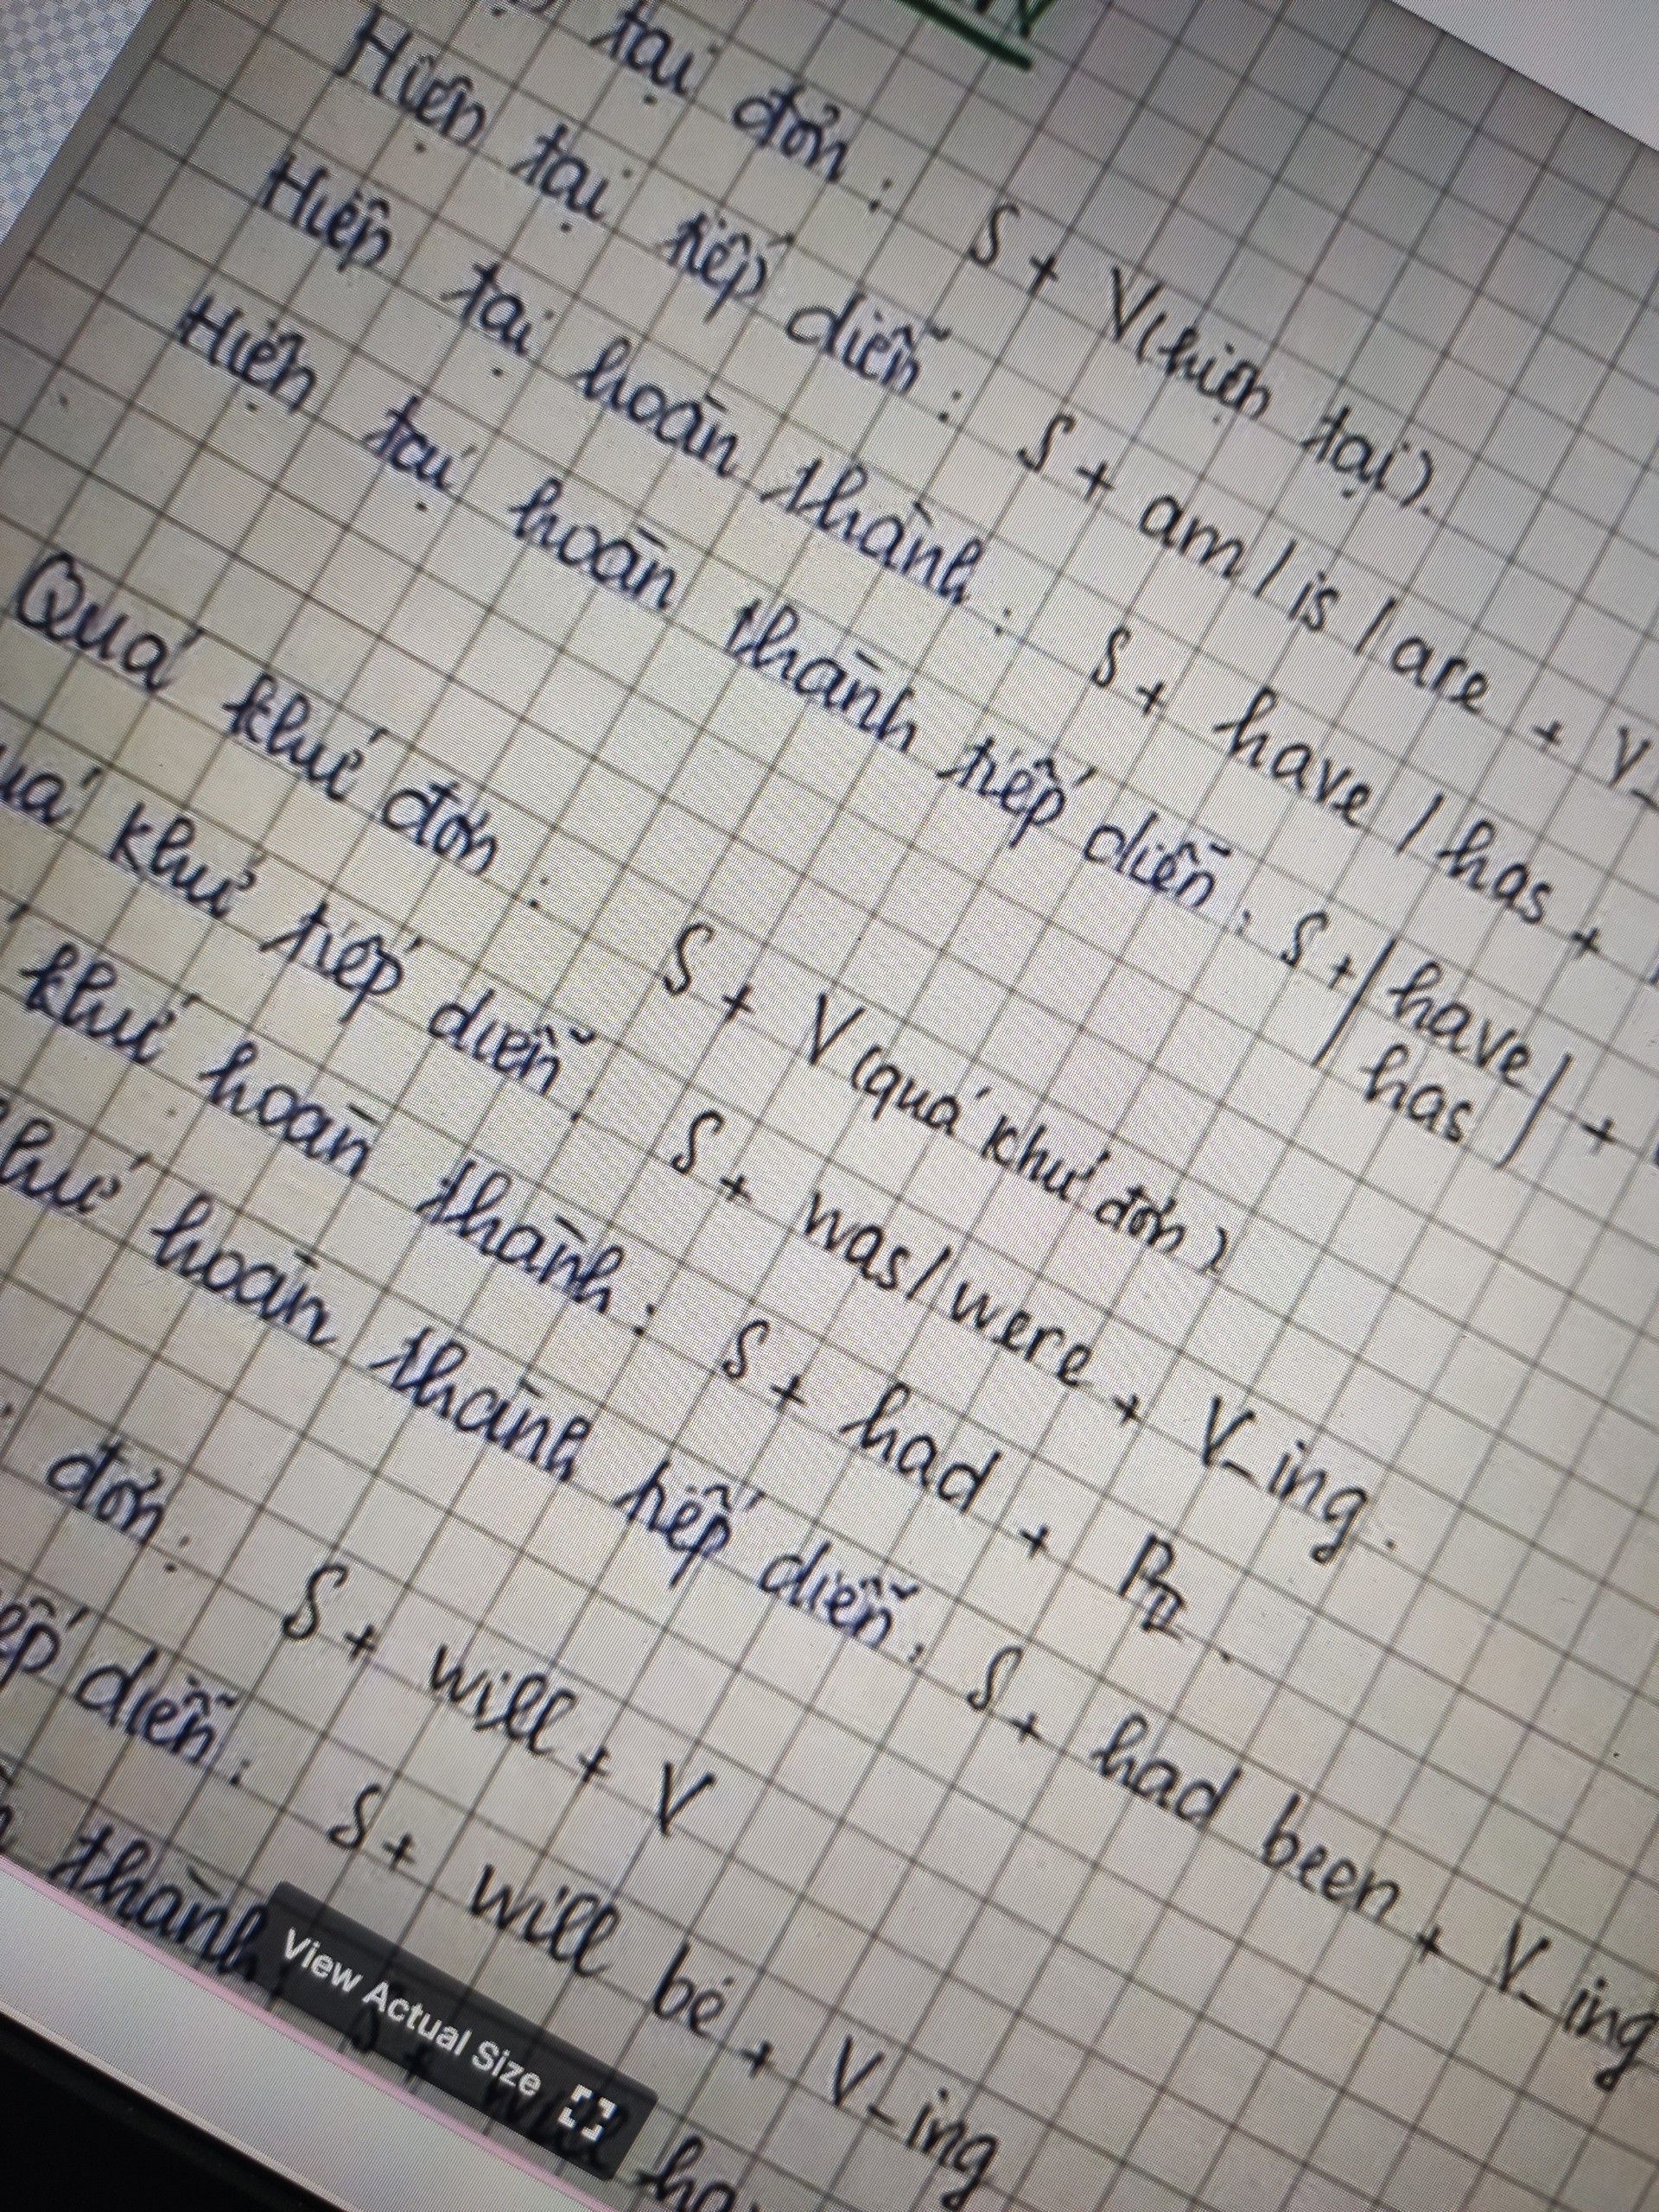 tại đơn : S + V(hiện tại).
Hiện tại tiếp diễn : S + am / is / are + V_
Hiện tại hoàn thành : S + have / has +
Hiện tại hoàn thành tiếp diễn : S + | have | +
has
Quá khứ đơn : S + V (quá khứ đơn)
khứ tiếp diễn : S + was / were + V_ing.
khứ hoàn thành : S + had + PII.
hoàn thành tiếp diễn : S + had been + V_ing
đơn : S + will + V
diễn : S + will be + V_ing
thành
View Actual Size